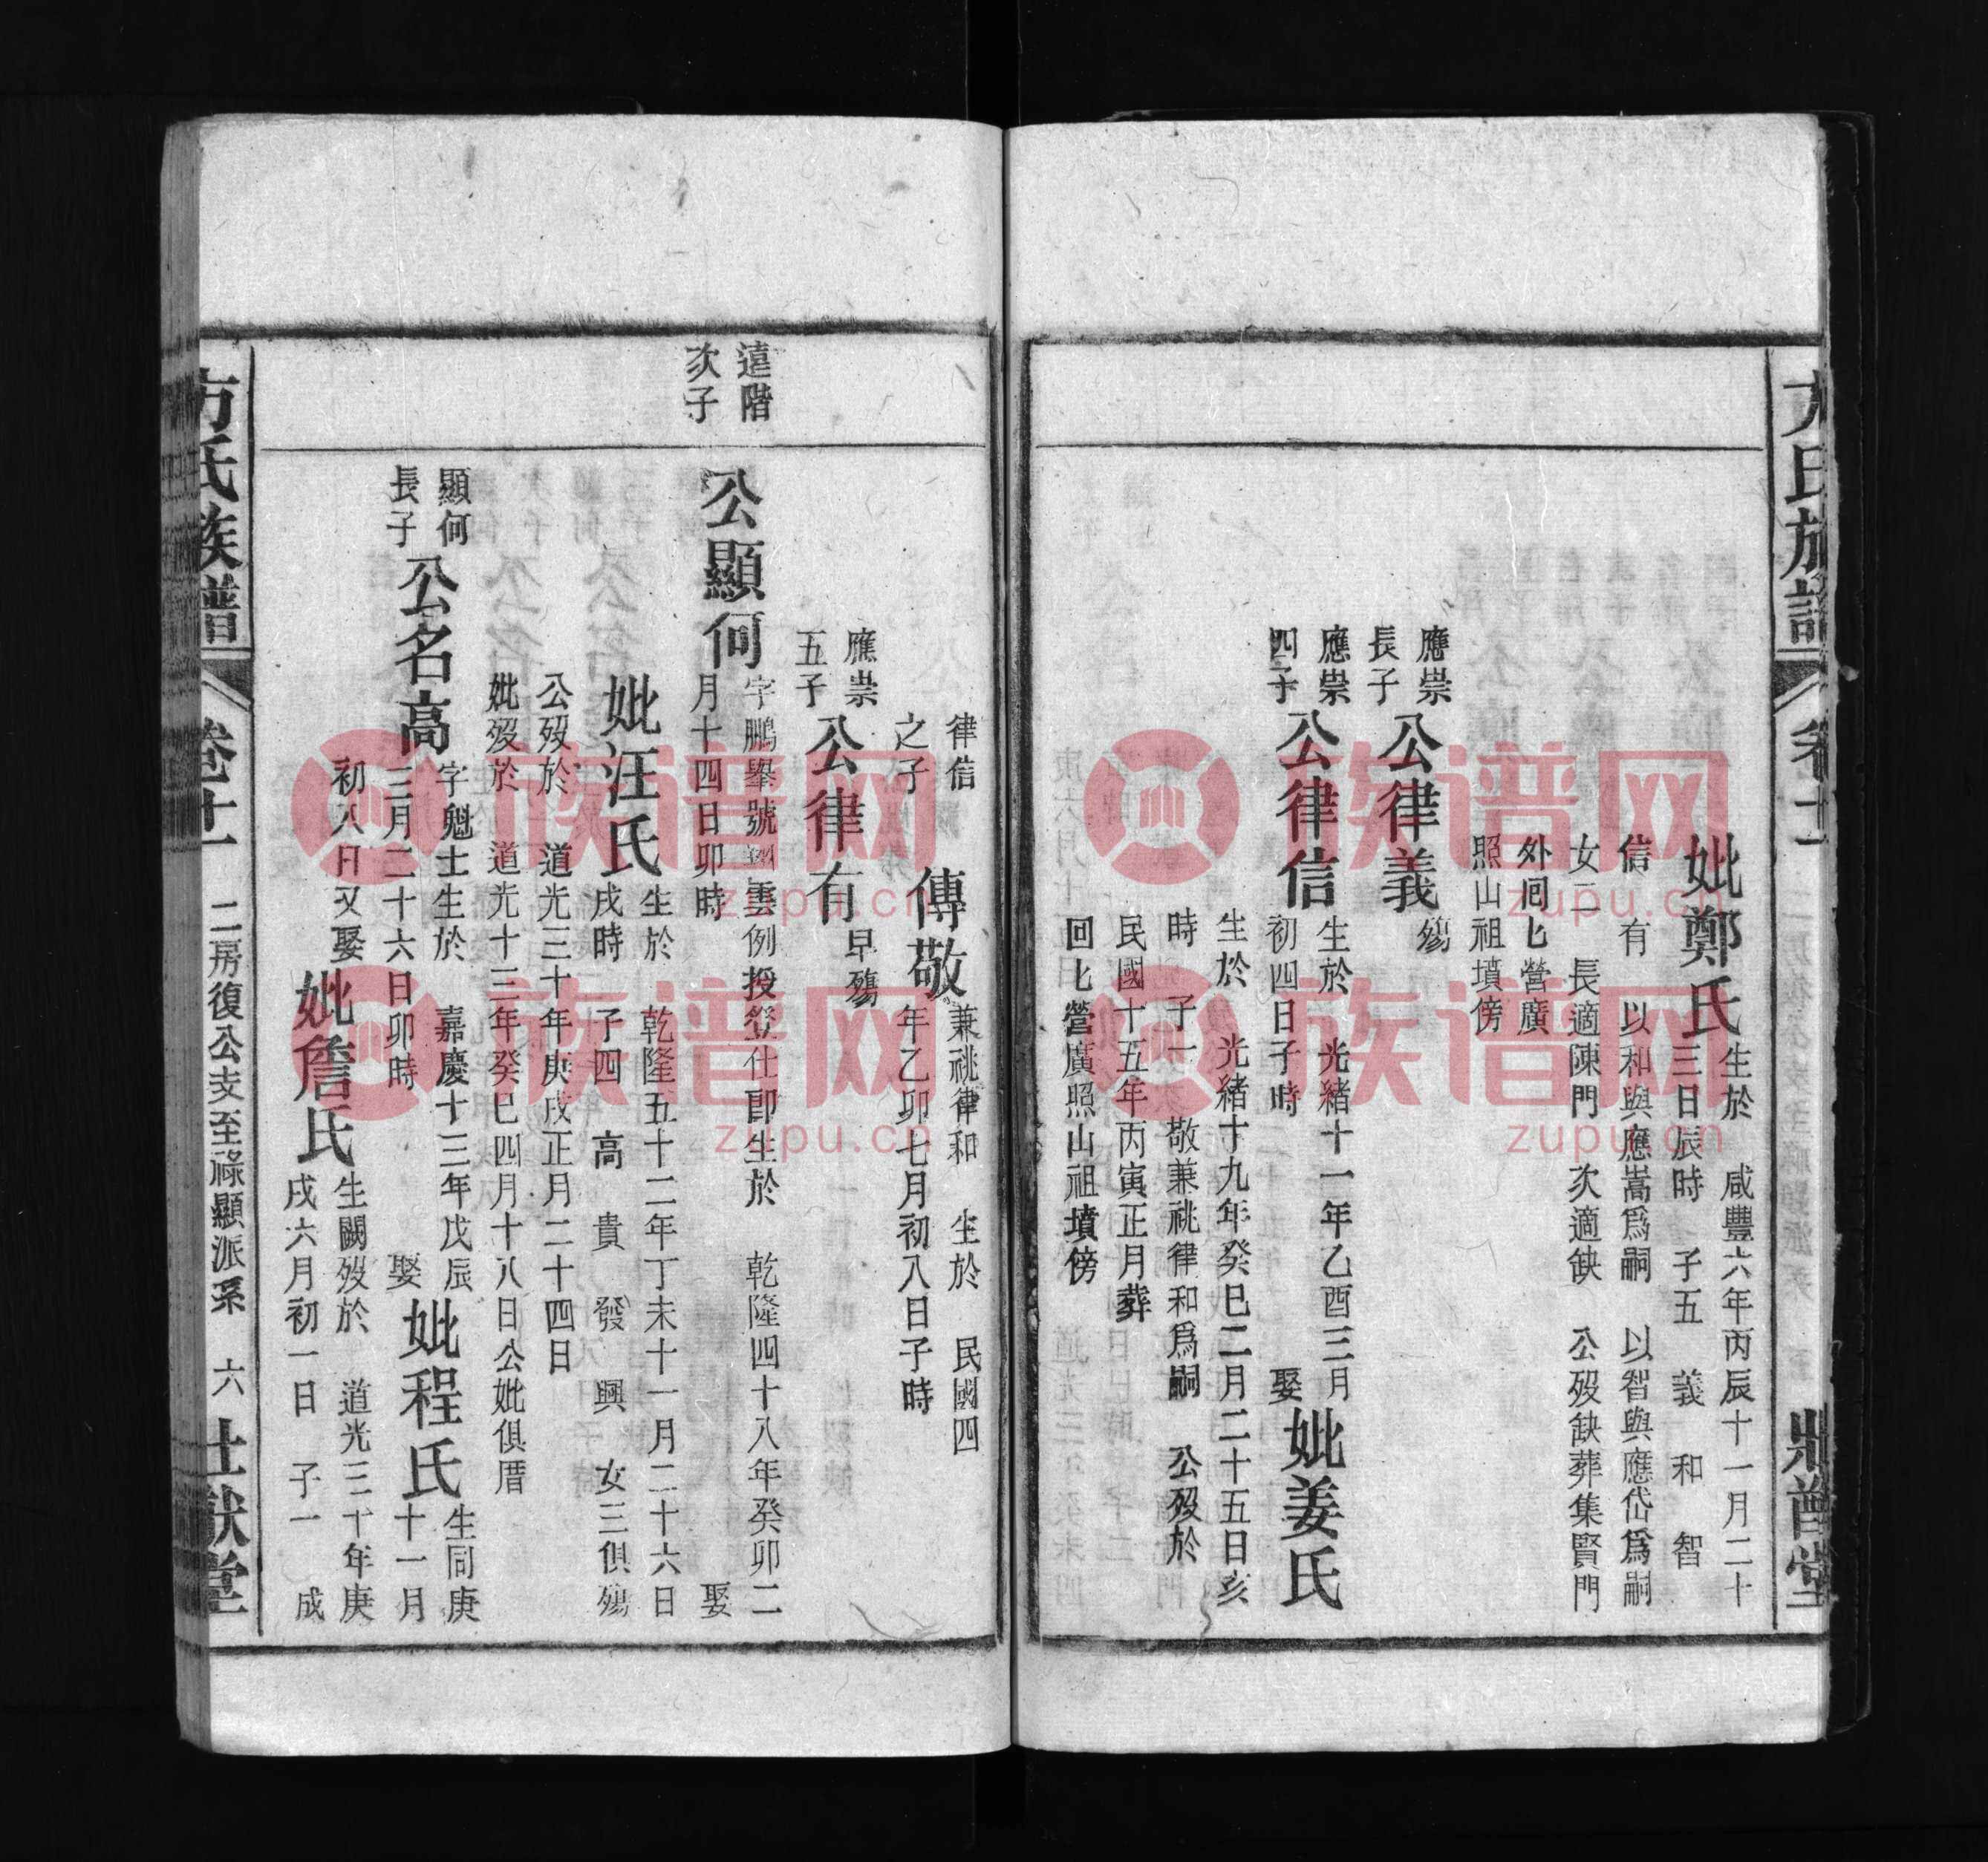 方氏族譜
妣鄭氏
生於 咸豐六年丙辰十一月二十
三日辰時 子五 義 和 智
信 有 以和與應嵩爲嗣 以智與應岱爲嗣
女二 長適陳門 次適缺 公歿缺葬集賢門
外囘七營廣
照山祖墳傍
應崇
長子
公律義
殤
應崇
四子
公律信
生於 光緒十一年乙酉三月
初四日子時 娶
妣姜氏
生於 光緒十九年癸巳二月二十五日亥
時 子一 敬兼祧律和爲嗣 公歿於
民國十五年丙寅正月葬
回七營廣照山祖墳傍
律信
之子
傳敬
兼祧律和 生於 民國四
年乙卯七月初八日子時
應崇
五子
公律有
早殤
遠階
次子
公顯何
字鵬舉號翽雲例授登仕郎生於 乾隆四十八年癸卯二
月十四日卯時 娶
妣汪氏
生於 乾隆五十二年丁未十一月二十六日
戌時 子四 高 貴 發 興 女三俱殤
公歿於 道光三十年庚戌正月二十四日
妣歿於 道光十三年癸巳四月十八日公妣俱厝
顯何
長子
公名高
字魁士生於 嘉慶十三年戊辰
三月二十六日卯時 娶
妣程氏
生同庚
十一月
初八日又娶
妣詹氏
生闕歿於 道光三十年庚
戌六月初一日 子一 成
方氏族譜
卷十一
二房復公支至祿顯派系 六
族谱网
zupu.cn
族谱网
zupu.cn
族谱网
zupu.cn
族谱网
zupu.cn